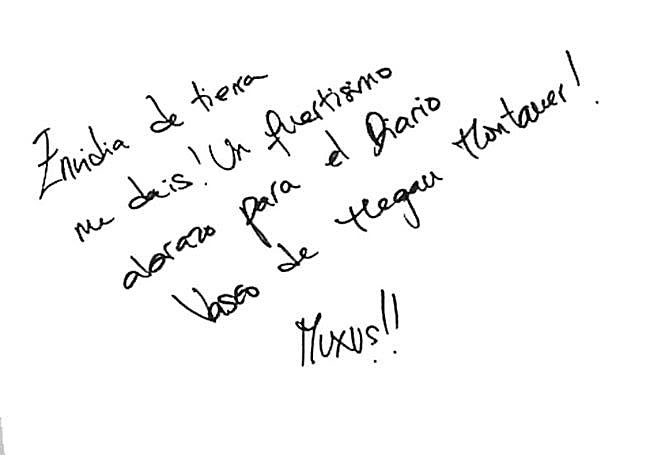 Envidia de tierra
me dais! Un fuertisimo
abrazo para el Diario
Vasco de Megan Montaner!
Muxus!!